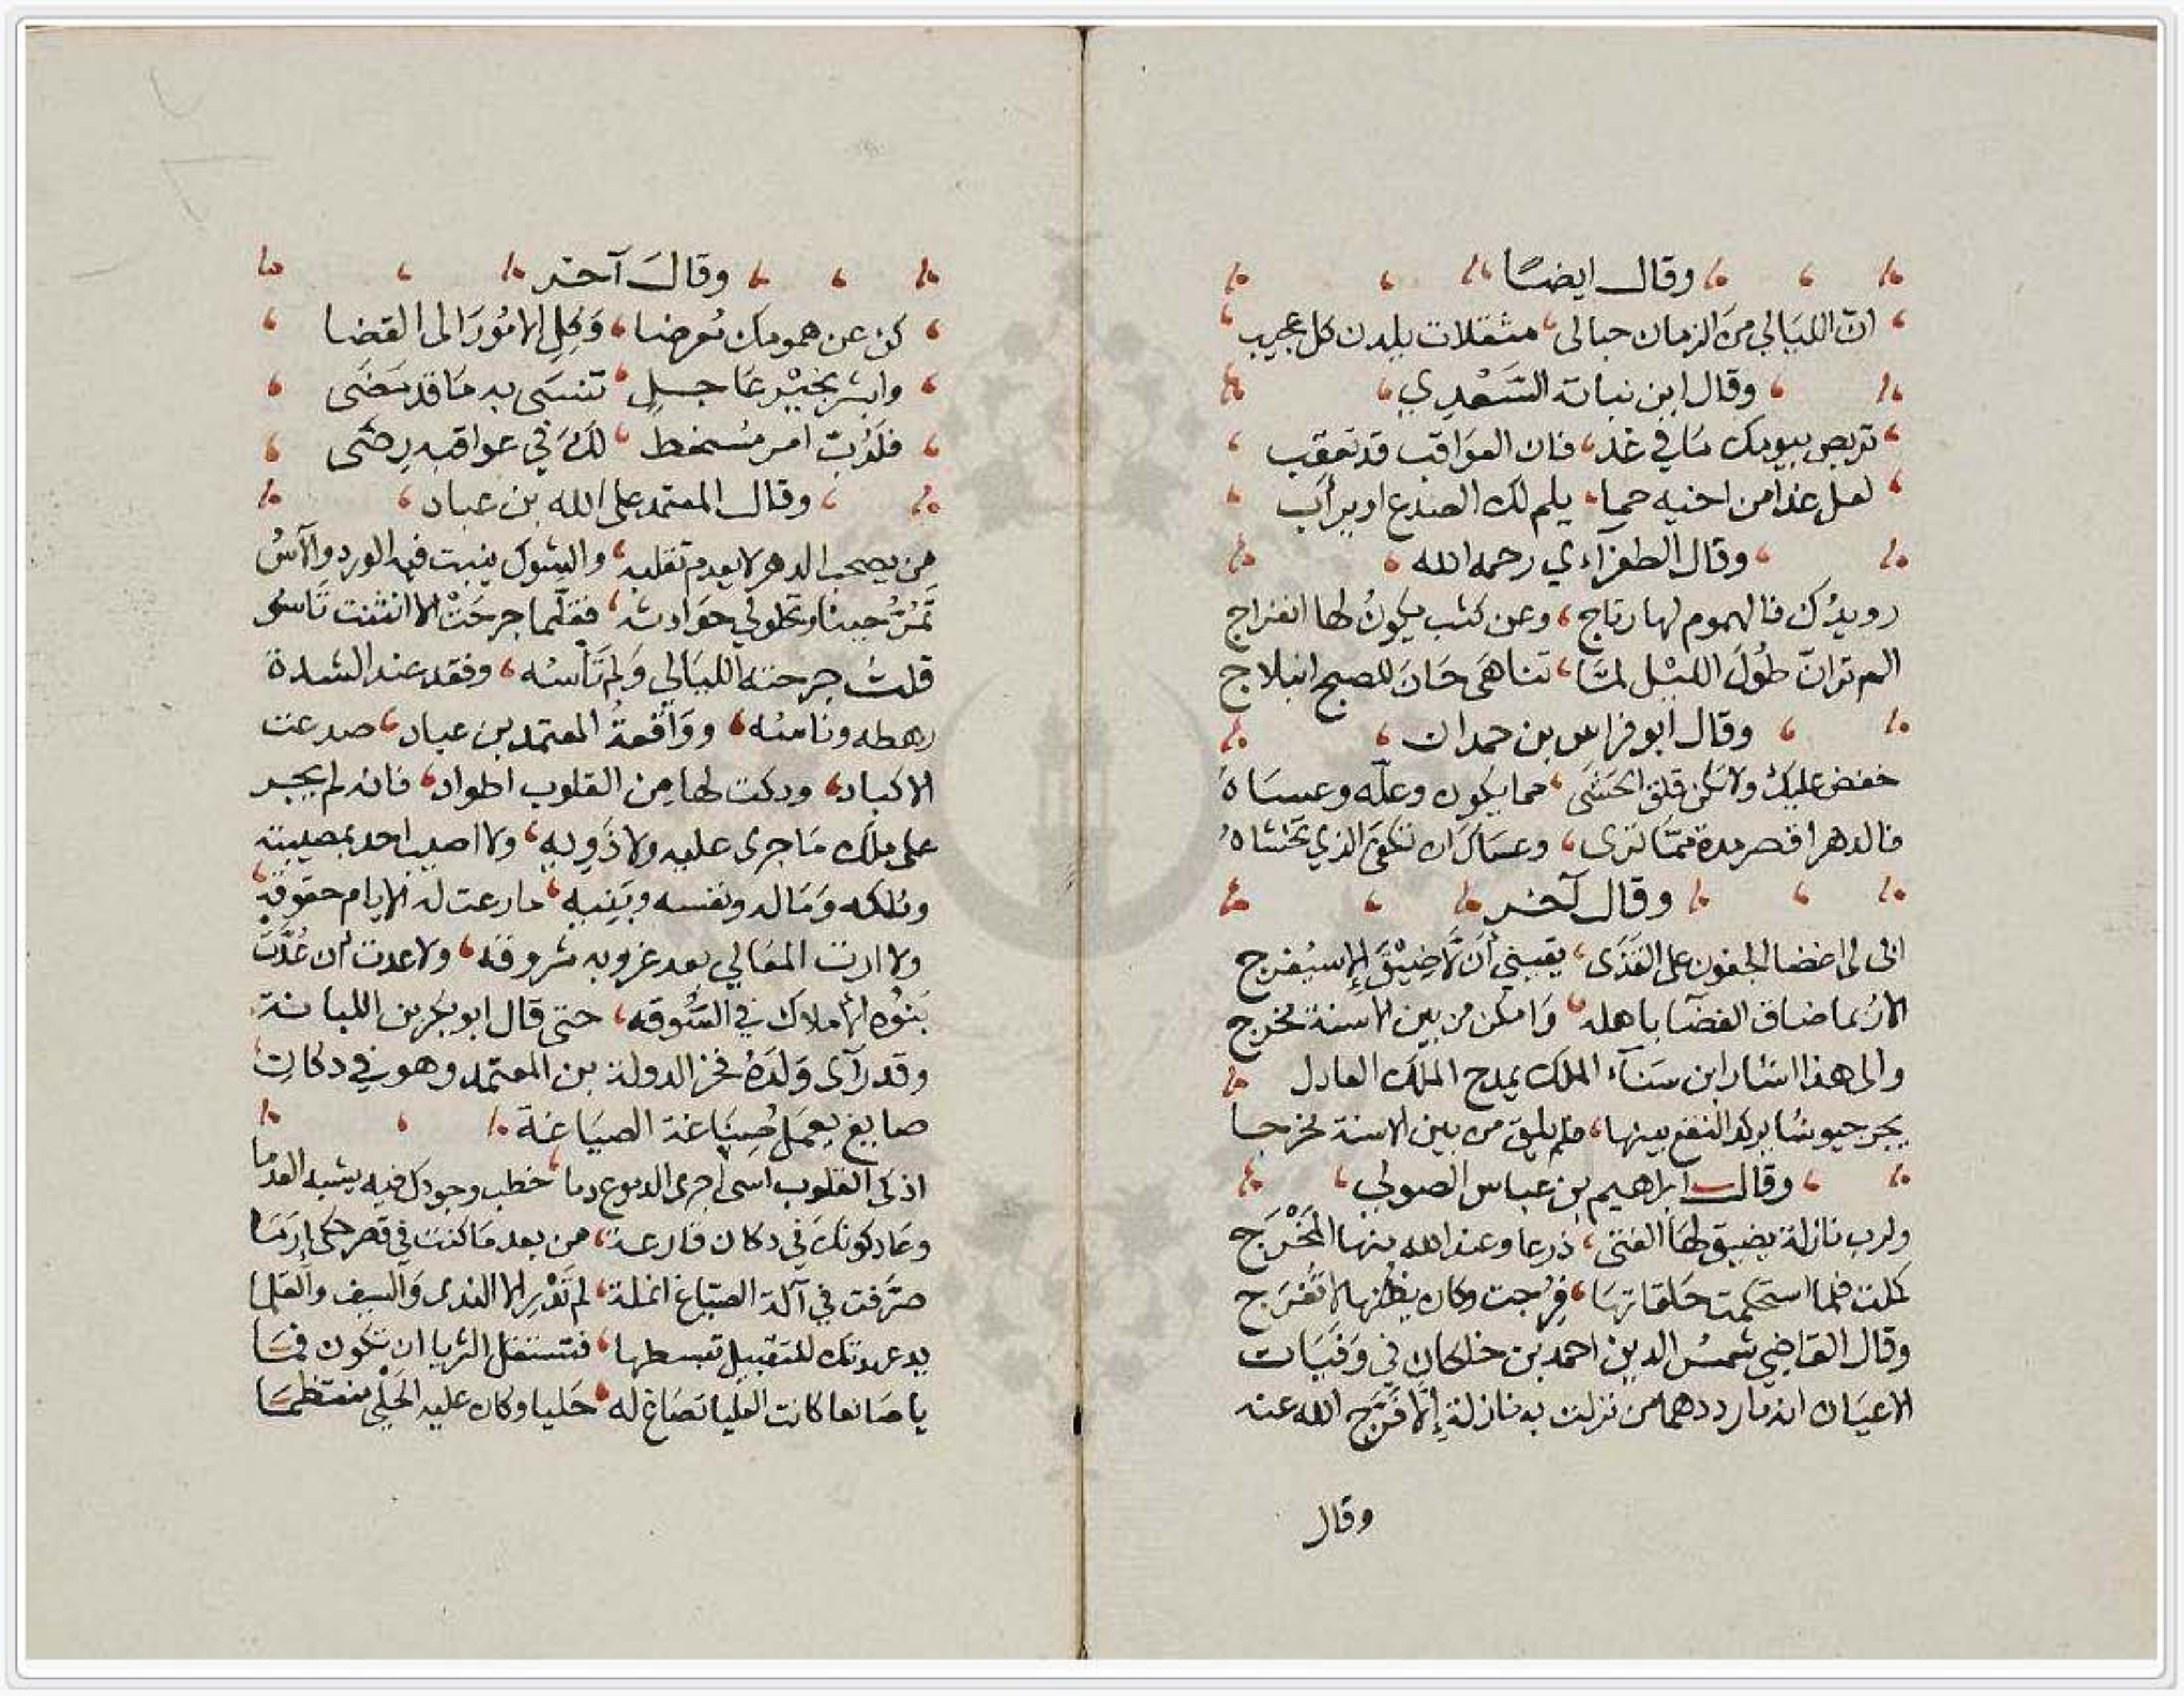 وقال ايضًا
انّ الليَالي مِنَ الزمان حبالى، مثقلات يلدن كل عجيب
وقال ابن نباتة السَّعْدِي
تربص بيومك مَا في غد، فان العوَاقب قد تعقب
لعل غدا من اخيه حما، يلم لك الصدع او يرأب
وقال الطغرآءي رحمه الله
رويدُك فالهموم لها رتاج، وعن كثب يكونُ لها انفراج
الم تر انّ طُولَ الليْل لمّا، تناهَى حَانَ للصبح انبلاج
وقال ابو فراس بن حمدان
خفض عليك ولا تكن قلق الحَشَى، مما يكون وعلّه وعسَاهُ
فالدهر اقصر مدة ممّا ترى، وعسَاكَ ان تكفىَ الذي تخشاهُ
وقال آخر
الى لى اغضا الجفون على القَذَى، يقيني أنْ لَّا ضِيْقَ الا سيُفرج
الا رُبما ضاق الفضَآ باهله، وَامكن من بين الاسنة مخرج
والى هذا اشار ابن سَنَآء الملك يمدح الملك العادل
يجر جيوشا يركد النقع بينها، فلم يلق من بين الاسنة مخرجا
وقال ابراهيم بن عباس الصولي
ولرب نازلة يضيق لهَا الفتى، ذرعا وعند الله منها المَخْرَج
كملت فلما استحكمت حَلقاتها، فُرِجت وكان يظنها لا تُفرَج
وقال القاضي شمسُ الدين احمد بن خلكان في وَفَيَات
الاعيَان انه ما رددهما من نزلت به نازلة إلّا فَرَّجَ الله عنه
وقال
وقالَ آخر
كن عن همومك مُعرضا، وَكِلِ الامُورَ الى القضا
وابشر بخيْر عَاجلٍ، تنسَى به مَا قد مَضَى
فلَرُبّ امر مُسخط، لكَ في عواقبه رِضَى
وقال المعتمد على الله بن عباد
من يصحب الدهر لا يعدم تقلبه، والشوك ينبت فيه الورد والآسُ
تَمُرُّ حينا وتحلولي حوَادثه، فقلّما جرحَتْ الا انثنت تَاسو
قلتُ جرحته الليَالي وَلم تَأسُه، وفقد عند الشدة
رهطه وناسُه، ووَاقعةُ المعتمد بن عباد، صدعت
الاكباد، ودكت لها مِن القلوب اطواد، فانه لم يجر
على ملك مَا جرى عليه ولا ذَويه، ولا اصيب احد بمصيبته
وملكه وَمَاله ونفسه وبَنِيه، ما رعت له الايام حقوقه
ولا ارت المعَالي بعد غروبه شروقه، ولا عدت ان عُدَّتْ
بَنُوه الاملاك في السُّوقه، حتى قال ابو بكر بن اللبانة
وقد رآى وَلَدَهُ فخر الدولة بن المعتمد وهو في دكان
صايغ يعمَل صِيَاغة الصيَاغة
اذكى القلوب اسى اجرى الدموع دما، خطب وجودك فيه يشبه العدما
وعَاد كونك في دكان قارعة، من بعد مَا كنت في قصر حكى إرَمَا
صَرَّفت في آلة الصيّاغ انملة، لم تَدْرِ الا الندى وَالسيف والقلما
يد عهدتك للتقبيل تبسطها، فتستقل الثريا ان تكون فمَا
يا صَائغا كانت العليا تصَاغ له، حَليا وكان عليه الحَلْي منتظمَا